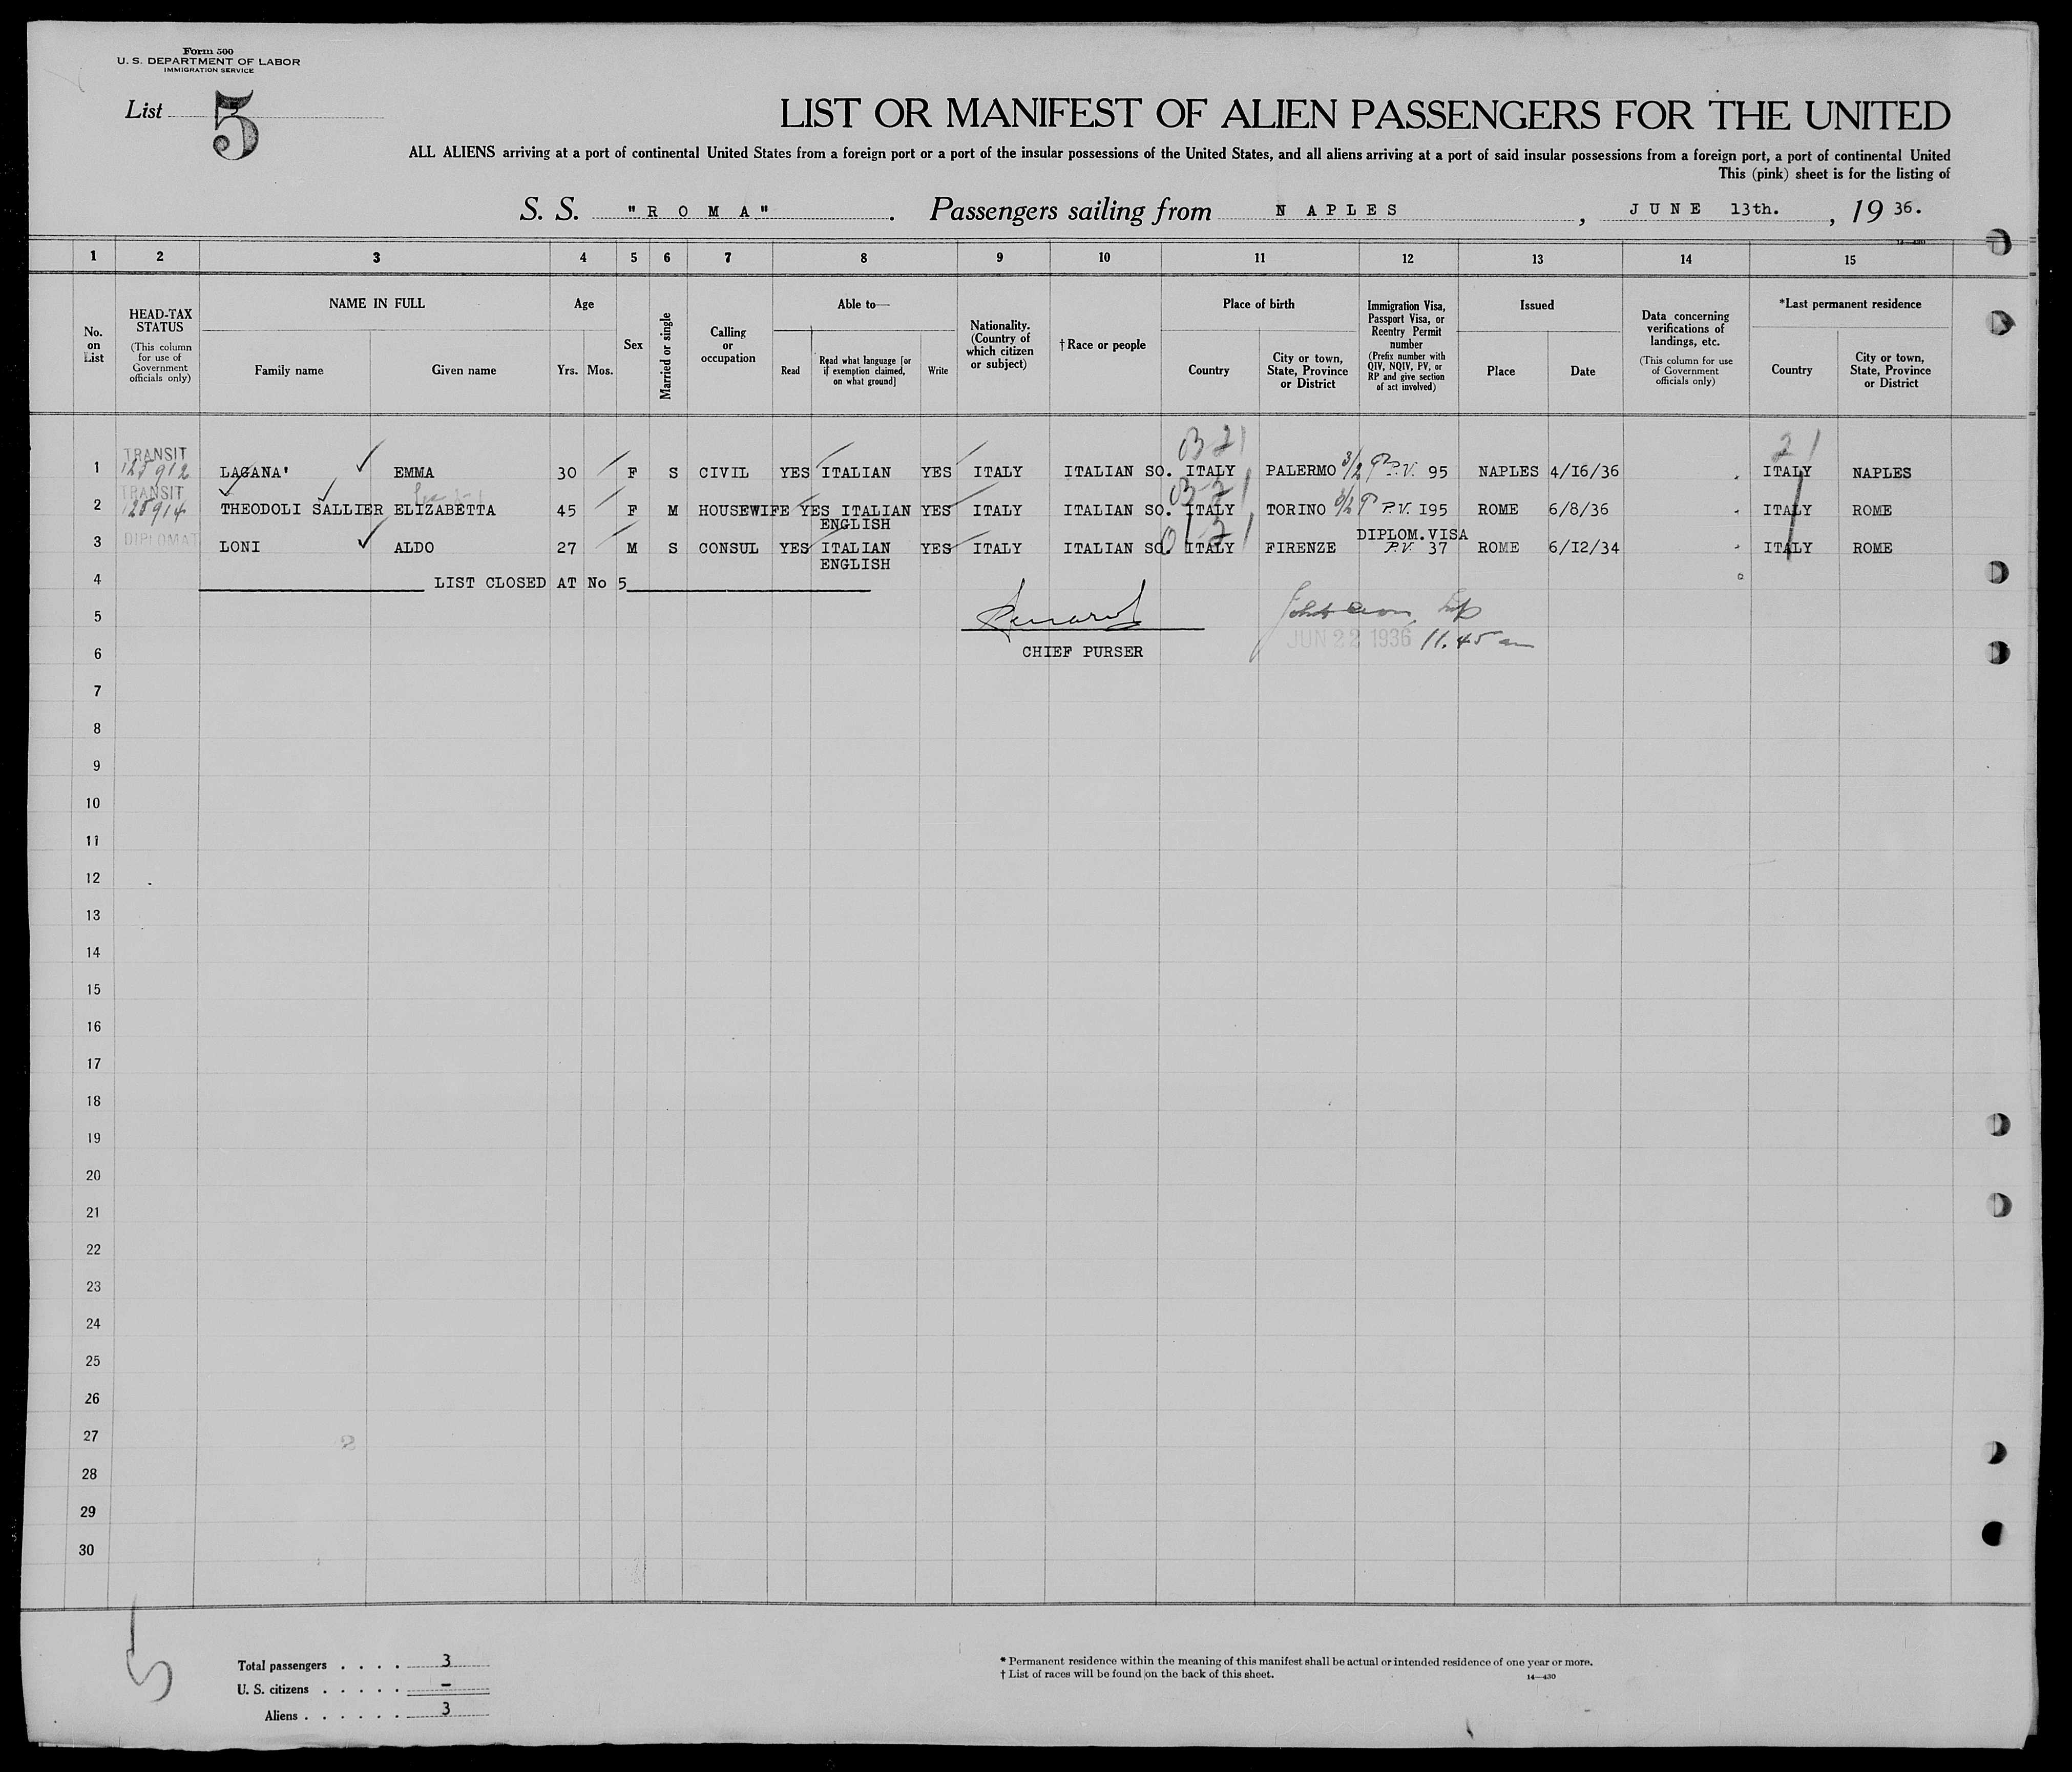 Form 500
U. S. DEPARTMENT OF LABOR
IMMIGRATION SERVICE
List 5
LIST OR MANIFEST OF ALIEN PASSENGERS FOR THE UNITED
ALL ALIENS arriving at a port of continental United States from a foreign port or a port of the insular possessions of the United States, and all aliens arriving at a port of said insular possessions from a foreign port, a port of continental United
This (pink) sheet is for the listing of
S. S. "R O M A" . Passengers sailing from N A P L E S , J U N E 13th. , 19 36.
14—430
1 2 3 4 5 6 7 8 9 10 11 12 13 14 15
No. on List
HEAD-TAX STATUS
(This column for use of Government officials only)
NAME IN FULL
Family name Given name
Age
Yrs. Mos.
Sex
Married or single
Calling or occupation
Able to—
Read Read what language [or if exemption claimed, on what ground] Write
Nationality. (Country of which citizen or subject)
†Race or people
Place of birth
Country City or town, State, Province or District
Immigration Visa, Passport Visa, or Reentry Permit number
(Prefix number with QIV, NQIV, PV, or RP and give section of act involved)
Issued
Place Date
Data concerning verifications of landings, etc.
(This column for use of Government officials only)
*Last permanent residence
Country City or town, State, Province or District
TRANSIT 21
1 LAGANA' EMMA 30 F S CIVIL YES ITALIAN YES ITALY ITALIAN SO. ITALY PALERMO 3/2 P.V. 95 NAPLES 4/16/36 ITALY NAPLES
TRANSIT
2 128914 THEODOLI SALLIER ELIZABETTA 45 F M HOUSEWIFE YES ITALIAN YES ITALY ITALIAN SO. ITALY TORINO 3/2 P.V. I95 ROME 6/8/36 ITALY ROME
ENGLISH
DIPLOMAT DIPLOM.VISA
3 LONI ALDO 27 M S CONSUL YES ITALIAN YES ITALY ITALIAN SO. ITALY FIRENZE P.V. 37 ROME 6/I2/34 ITALY ROME
ENGLISH
4 LIST CLOSED AT No 5
5
JUN 22 1936 11.45 am
6 CHIEF PURSER
7
8
9
10
11
12
13
14
15
16
17
18
19
20
21
22
23
24
25
26
27
28
29
30
5
Total passengers . . . . 3
U. S. citizens . . . . . –
Aliens . . . . . . 3
* Permanent residence within the meaning of this manifest shall be actual or intended residence of one year or more.
† List of races will be found on the back of this sheet.
14—430